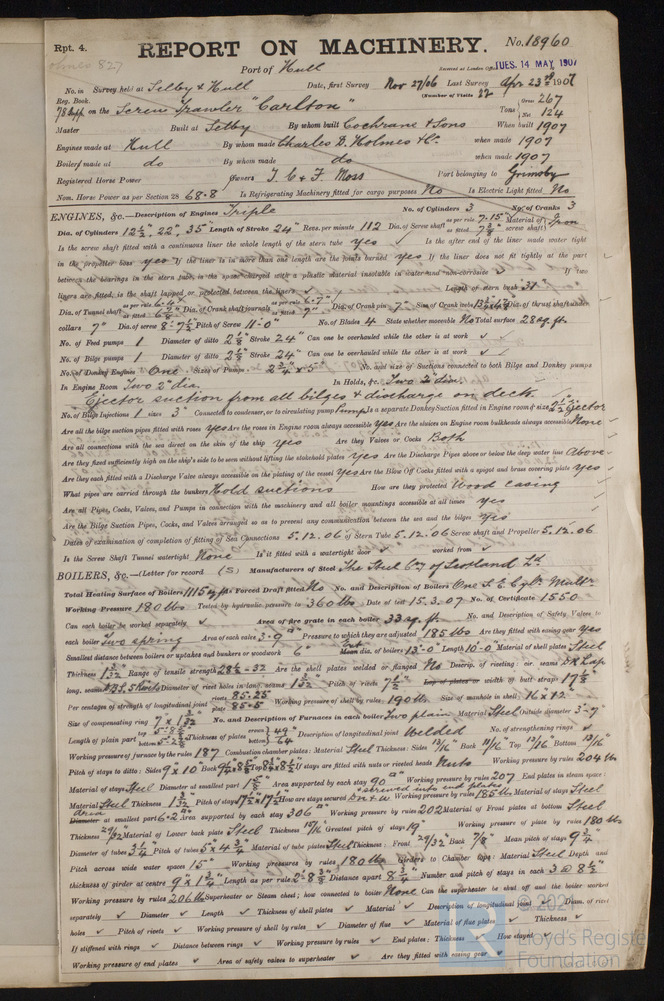 Rpt. 4.
REPORT ON MACHINERY.
No. 18960
Port of Hull
Received at London Office TUES. 14 MAY 1907
No. in Survey held at Selby & Hull Date, first Survey Nov 27/06 Last Survey Apr 23rd 1907
Reg. Book. (Number of Visits 22)
78 Supp on the Screw Trawler "Carlton" Tons { Gross 267 Net 124
Master Built at Selby By whom built Cochrane & Sons When built 1907
Engines made at Hull By whom made Charles D. Holmes & Co. when made 1907
Boilers made at do By whom made do when made 1907
Registered Horse Power Owners T. C. & F. Moss Port belonging to Grimsby
Nom. Horse Power as per Section 28 68.8 Is Refrigerating Machinery fitted for cargo purposes No Is Electric Light fitted No
ENGINES, &c.—Description of Engines Triple No. of Cylinders 3 No. of Cranks 3
Dia. of Cylinders 12½", 22", 35" Length of Stroke 24" Revs. per minute 112 Dia. of Screw shaft as per rule 7.15" as fitted Material of screw shaft Iron
Is the screw shaft fitted with a continuous liner the whole length of the stern tube yes Is the after end of the liner made water tight
in the propeller boss yes If the liner is in more than one length are the joints burned yes If the liner does not fit tightly at the part
between the bearings in the stern tube, is the space charged with a plastic material insoluble in water and non-corrosive If two
liners are fitted, is the shaft lapped or protected between the liners Length of stern bush 31"
Dia. of Tunnel shaft as per rule 6.4" as fitted Dia. of Crank shaft journals as per rule 6.7" as fitted 7" Dia. of Crank pin 7" Size of Crank webs Dia. of thrust shaft under
collars 7" Dia. of screw 8'-7½" Pitch of Screw 11'-0" No. of Blades 4 State whether moveable No Total surface 28 sq. ft.
No. of Feed pumps 1 Diameter of ditto Stroke 24" Can one be overhauled while the other is at work
No. of Bilge pumps 1 Diameter of ditto Stroke 24" Can one be overhauled while the other is at work
No. of Donkey Engines One Sizes of Pumps No. and size of Suctions connected to both Bilge and Donkey pumps
In Engine Room Two 2" dia. In Holds, &c. Two 2" dia.
Ejector suction from all bilges & discharge on deck.
No. of Bilge Injections 1 sizes 3" Connected to condenser, or to circulating pump Pump Is a separate Donkey Suction fitted in Engine room & size Ejector
Are all the bilge suction pipes fitted with roses yes Are the roses in Engine room always accessible yes Are the sluices on Engine room bulkheads always accessible None
Are all connections with the sea direct on the skin of the ship yes Are they Valves or Cocks Both
Are they fixed sufficiently high on the ship's side to be seen without lifting the stokehold plates yes Are the Discharge Pipes above or below the deep water line Above
Are they each fitted with a Discharge Valve always accessible on the plating of the vessel yes Are the Blow Off Cocks fitted with a spigot and brass covering plate yes
What pipes are carried through the bunkers Hold suctions How are they protected Wood casing
Are all Pipes, Cocks, Valves, and Pumps in connection with the machinery and all boiler mountings accessible at all times yes
Are the Bilge Suction Pipes, Cocks, and Valves arranged so as to prevent any communication between the sea and the bilges yes
Dates of examination of completion of fitting of Sea Connections 5.12.06 of Stern Tube 5.12.06 Screw shaft and Propeller 5.12.06
Is the Screw Shaft Tunnel watertight None Is it fitted with a watertight door worked from
BOILERS, &c.—(Letter for record (S) Manufacturers of Steel The Steel Coy of Scotland Ld
Total Heating Surface of Boilers 1115 sq ft Is Forced Draft fitted No No. and Description of Boilers One S. E. Cylr Multr
Working Pressure 180 lbs Tested by hydraulic pressure to 360 lbs Date of test 15.3.07 No. of Certificate 1550
Can each boiler be worked separately Area of fire grate in each boiler 33 sq. ft. No. and Description of Safety Valves to
each boiler Two spring Area of each valve Pressure to which they are adjusted 185 lbs Are they fitted with easing gear yes
Smallest distance between boilers or uptakes and bunkers or woodwork 6" dia. of boilers 13'-0" Length 10'-0" Material of shell plates Steel
Thickness Range of tensile strength 28½-32 Are the shell plates welded or flanged No Descrip. of riveting: cir. seams D.R. Lap
long. seams Diameter of rivet holes in long. seams Pitch of rivets 7½" Lap of plates or width of butt straps
Per centages of strength of longitudinal joint rivets 85.25 plate 85.5 Working pressure of shell by rules 190 lbs Size of manhole in shell 16" x 12"
Size of compensating ring No. and Description of Furnaces in each boiler Two plain Material Steel Outside diameter 3'-7"
Length of plain part top bottom Thickness of plates crown bottom Description of longitudinal joint Welded No. of strengthening rings
Working pressure of furnace by the rules 187 Combustion chamber plates: Material Steel Thickness: Sides Back 11/16" Top Bottom
Pitch of stays to ditto: Sides 9" x 10" Back Top If stays are fitted with nuts or riveted heads Nuts Working pressure by rules 204 lbs
Material of stays Steel Diameter at smallest part Area supported by each stay 90 Working pressure by rules 207 End plates in steam space:
screwed into end plates
Material Steel Thickness Pitch of stays How are stays secured D.N. & W Working pressure by rules 185 lbs Material of stays Steel
area at smallest part Area supported by each stay 306 Working pressure by rules 202 Material of Front plates at bottom Steel
Thickness Material of Lower back plate Steel Thickness Greatest pitch of stays 19" Working pressure of plate by rules 180 lbs
Diameter of tubes 3¼" Pitch of tubes Material of tube plates Steel Thickness: Front 29/32" Back 7/8" Mean pitch of stays 9¾"
Pitch across wide water spaces 15" Working pressures by rules 180 lbs Girders to Chamber tops: Material Steel Depth and
thickness of girder at centre Length as per rule Distance apart Number and pitch of stays in each 3 @ 8½"
Working pressure by rules 206 lbs Superheater or Steam chest; how connected to boiler None Can the superheater be shut off and the boiler worked
separately Diameter Length Thickness of shell plates Material Description of longitudinal joint Diam. of rivet
holes Pitch of rivets Working pressure of shell by rules Diameter of flue Material of flue plates Thickness
If stiffened with rings Distance between rings Working pressure by rules End plates: Thickness How stayed
Working pressure of end plates Area of safety valves to superheater Are they fitted with easing gear
Lloyd's Register
Foundation